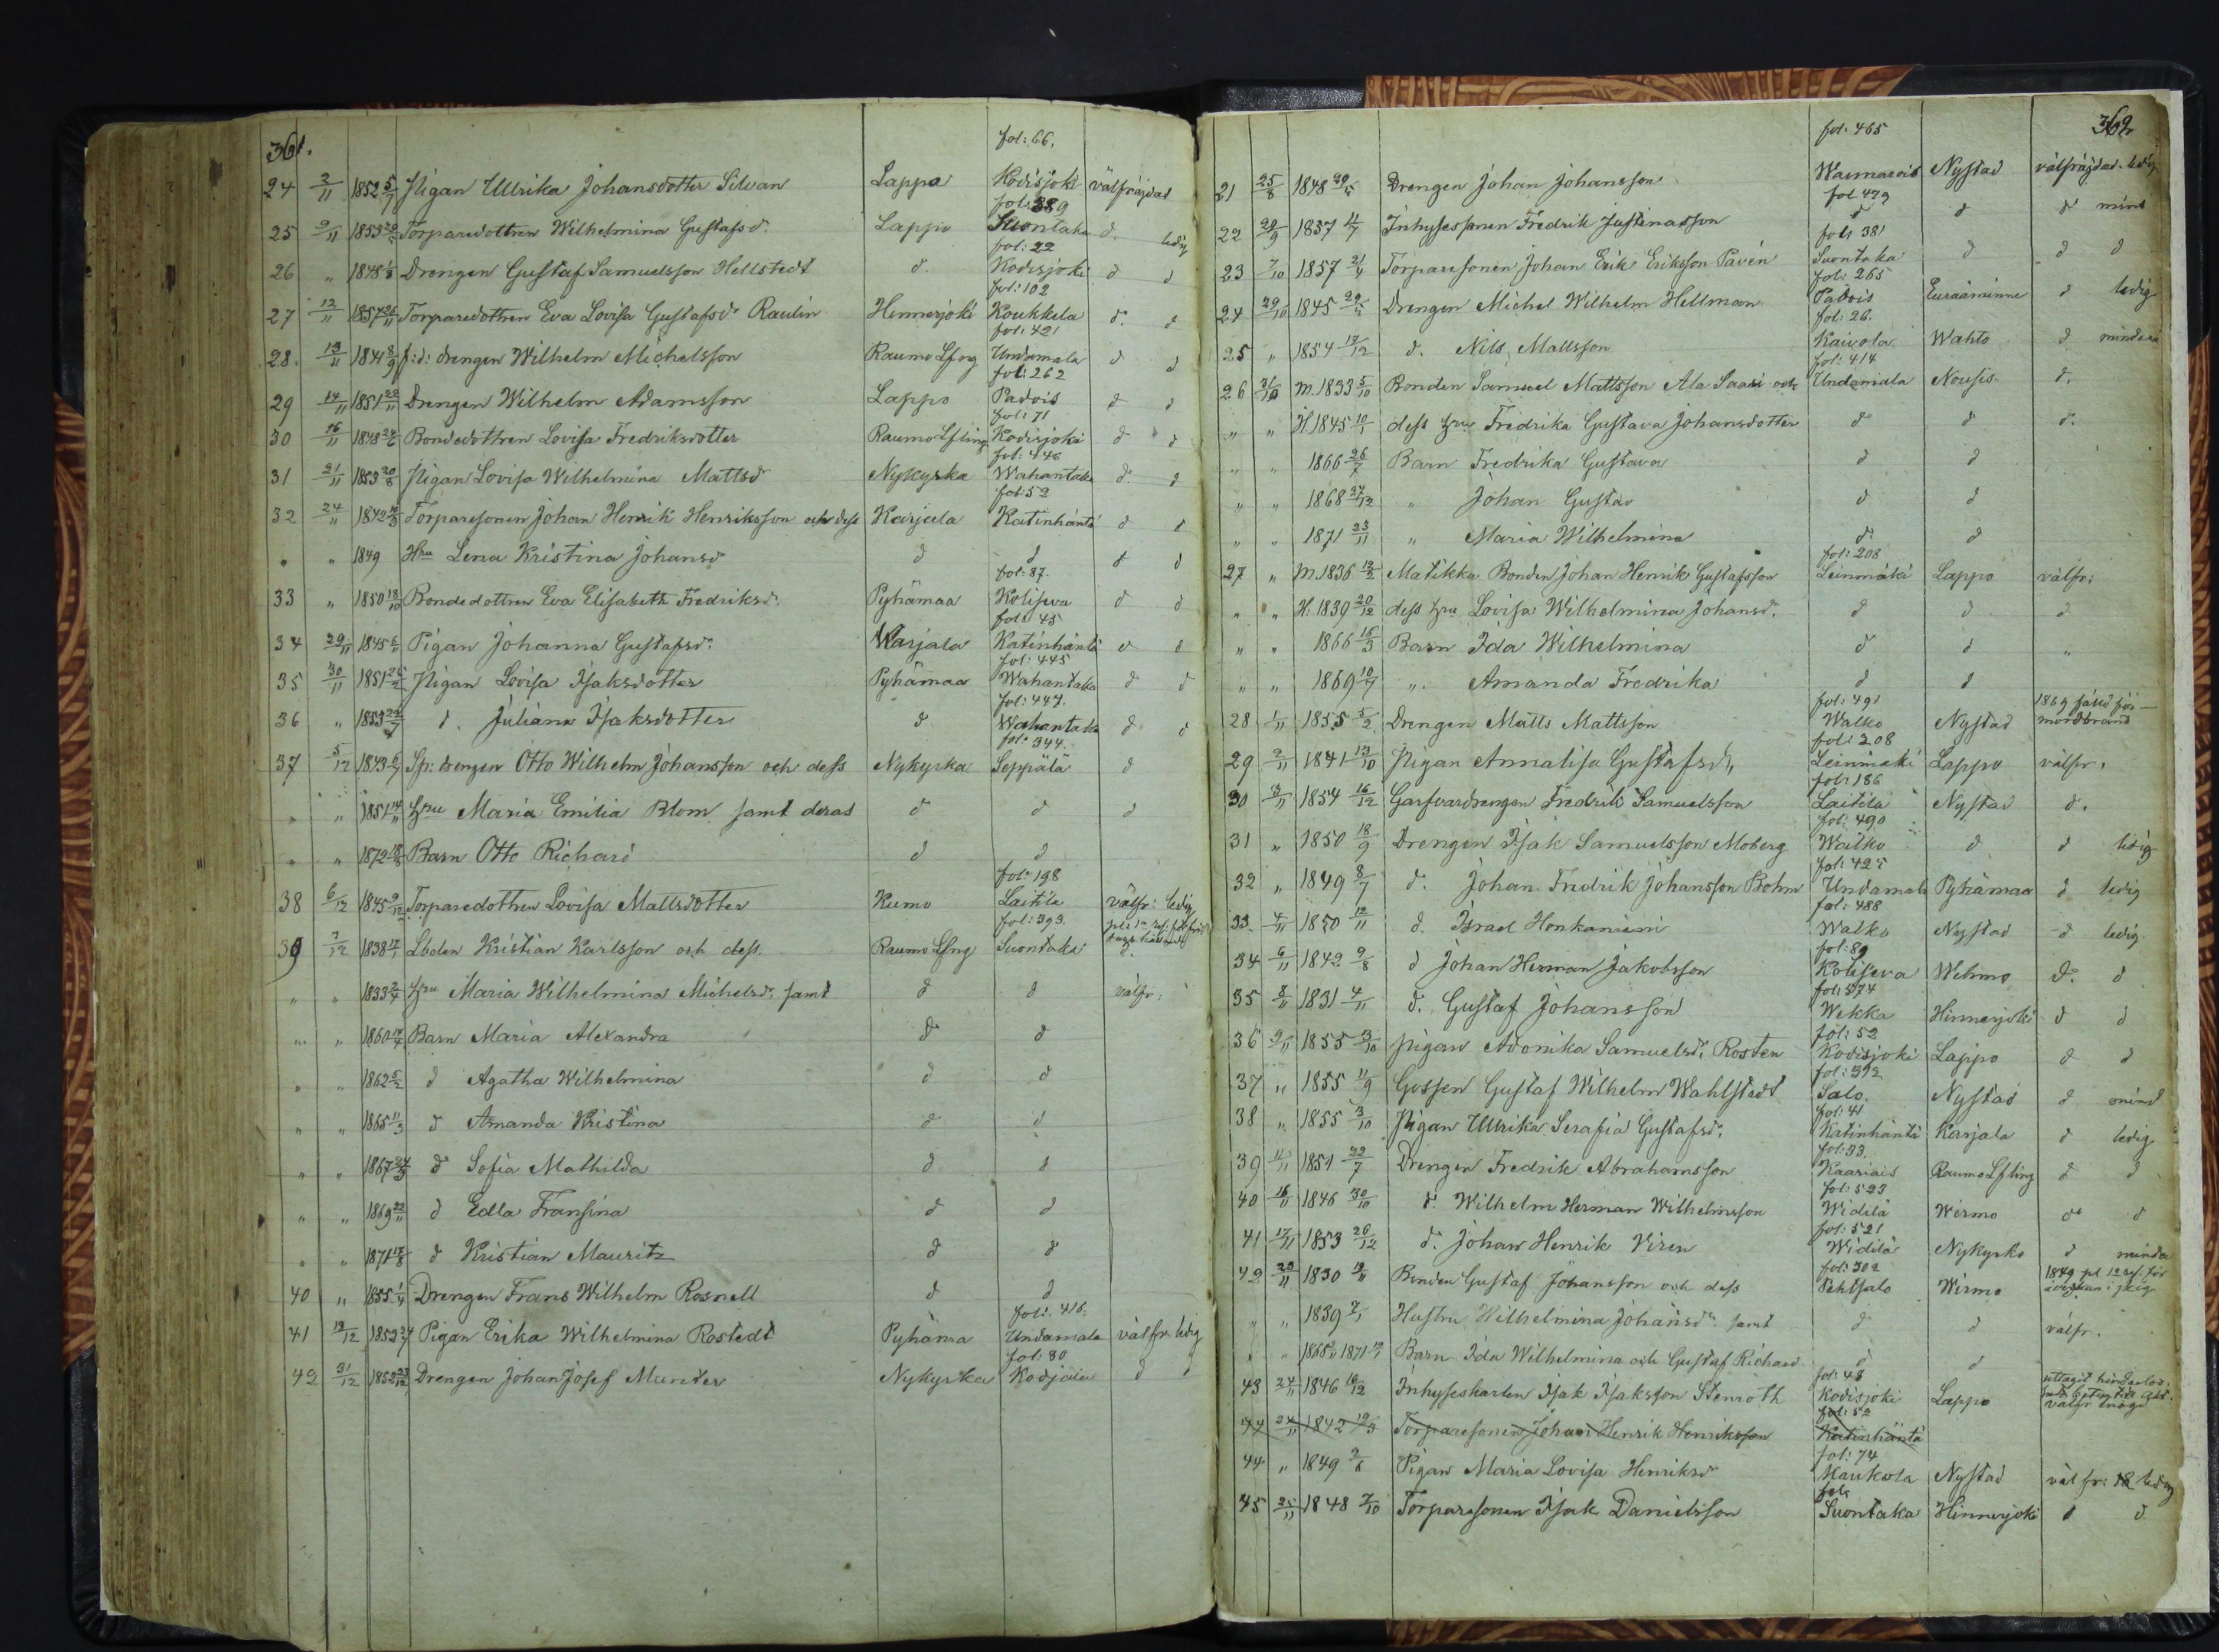 361.
fol: 66.
24 2/11 1852 5/7 Pigan Ulrika Johansdotter Silvan Lappo Kodisjoki välfräjdad
fol: 389
25 9/11 1853 Torparedottren Wilhelmina Gustafsd:r Lappo Suontaka d. ledig
fol: 22
26 " 1848 1/8 Drengen Gustaf Samuelsson Hellstedt d. Kodisjoki d d
fol: 102
27 12/11 1857 Torparedottren Eva Lovisa Gustafsd:r Raulin Hinnerjoki Koukkela d. d
fol: 421
28. 13/11 1841 8/9 f:d: drengen Wilhelm Michelsson Raumo Lfng Undamala d d
fol: 262
29 14/11 1851 22/11 Drengen Wilhelm Adamsson Lappo Padois d d
fol: 71
30 16/11 1848 24/6 Bondedottren Lovisa Fredriksdotter Raumo Lfling Kodisjoki d d
fol: 446
31 21/11 1853 20/8 Pigan Lovisa Wilhelmina Mattsd Nykyrka Wahantaka d. d
fol: 52
32 24/11 1842 Torparesonen Johan Henrik Henriksson och dess Karjala Katinhäntä d d
" " 1849 Hru Lena Kristina Johansd d d d d
fol: 87.
33 " 1850 18/10 Bondedottren Eva Elisabeth Fredriksd:r Pyhämaa Koliseva d d
fol: 45
34 29/11 1845 Pigan Johanna Gustafsd:r Karjala Katinhäntä d d
fol: 445
35 30/11 1851 Pigan Lovisa Isaksdotter Pyhämaa Wahantaka d d
fol: 447.
36 " 1853 d. Juliana Isaksdotter d Wahantaka d. d
fol: 344.
37 5/12 1843 Sp: drengen Otto Wilhelm Johansson och dess Nykyrka Seppälä d
" " 1851 14/11 Hru Maria Emilia Blom samt deras d d d
" " 1872 18/8 Barn Otto Richard d d
fol: 198
38 6/12 1845 9/12 Torparedottren Lovisa Mattsdotter Kumo Laitila välfr: ledig
fol: 393.
39 7/12 1838 17/1 Lboten Kristian Karlsson och dess. Raumo Lfng Suontaka d.
" " 1833 2/4 Hru Maria Wilhelmina Michelsd:r samt d d välfr:
" " 1860 Barn Maria Alexandra d d
" " 1862 5/2 d Agatha Wilhelmina d d
" " 1865 11/3 d Amanda Kristina d d
" " 1867 24/3 d Sofia Mathilda d d
" " 1869 22/11 d Edla Fransina d d
" " 1871 17/8 d Kristian Mauritz d d
40 " 1855 1/4 Drengen Frans Wilhelm Rosnell d d
fol: 416.
41 13/12 1852 Pigan Erika Wilhelmina Rostedt Pyhäma Undamala välfr. ledig
fol: 80
42 31/12 1852 23/12 Drengen Johan Josef Munter Nykyrka Kodjala d d
362.
fol: 465
21 25/8 1848 Drengen Johan Johansson Warmarais Nystad välfräjdad. ledig
fol 479
22 29/9 1857 4/7 Inhysessonen Fredrik Justinasson d d d mind
fol: 381
23 7/10 1857 21/4 Torparesonen Johan Erik Eriksson Pavén Suontaka d d d
fol: 265
24 29/10 1845 Drengen Michel Wilhelm Hellman Padois Euraåminne d ledig
fol: 26.
25 " 1854 17/12 d. Nils Mattsson Kaivola Wahto d minderå
fol: 414
26 31/10 M. 1833 5/10 Bonden Samuel Mattsson Ala Saari och Undamala Nousis d.
" " H. 1845 10/1 dess hru Fredrika Gustava Johansdotter d d d.
" " 1866 26/7 Barn Fredrika Gustava d d
" " 1868 27/12 " Johan Gustav d d
" " 1871 23/11 " Maria Wilhelmina d. d
fol: 208
27 " M. 1836 12/2 Matikka Bonden Johan Henrik Gustafsson Leinmäki Lappo välfr:
" " H. 1839 20/12 dess hru Lovisa Wilhelmina Johansd:r d d d
" " 1866 15/3 Barn Ida Wilhelmina d d "
" " 1869 10/7 " Amanda Fredrika d d
fol: 491 1869 sakf för
28 1/11 1855 5/2 Drengen Matts Mattsson Walko Nystad mordbrand
fol: 208
29 2/11 1841 13/10 Pigan Annalisa Gustafsd:r Leinmäki Lappo välfr.
fol: 186
30 3/11 1854 16/12 Garfvardrengen Fredrik Samuelsson Laitila Nystad d.
fol: 490
31 " 1850 18/9 Drengen Isak Samuelsson Moberg Walko d d ledig
fol: 425
32 " 1849 8/7 d. Johan Fredrik Johansson Bohm Undamala Pyhämaa d ledig
fol: 488
33. 4/11 1850 12/11 d. Israel Honkaniemi Walko Nystad d ledig.
fol: 89
34 6/11 1842 9/8 d Johan Herman Jakobsson Koliseva Wehmo d. d
fol: 374
35 8/11 1831 4/11 d. Gustaf Johansson Wekka Hinnerjoki d d
fol: 52
36 9/11 1855 3/10 Pigan Adonika Samuelsd:r Rosten Kodisjoki Lappo d d
fol: 392
37 " 1855 11/9 Gossen Gustaf Wilhelm Wahlstedt Salo. Nystad d mind
fol: 41
38 " 1855 3/10 Pigan Ulrika Serafia Gustafsd:r Katinhäntä Karjala d ledig
fol: 33.
39 11/11 1851 22/7 Drengen Fredrik Abrahamsson Kaariais Raumo Lfling d d
fol: 523
40 16/11 1846 30/10 d. Wilhelm Herman Wilhelmsson Widilä Wirmo d d
fol: 521
41 17/11 1853 26/12 d. Johan Henrik Viren Widilä Nykyrko d minder
fol: 302
42 23/11 1830 Bonden Gustaf Johansson och dess Pehtsalo Wirmo
" " 1839 7/1 Hustru Wilhelmina Johansd:r samt d d välfr.
" " 1865 1871 Barn Ida Wilhelmina och Gustaf Richard d d
fol: 48
43 24/11 1846 16/12 Inhyseskarlen Isak Isaksson Stenroth Kodisjoki Lappo
fol: 52
44 24/11 1842 Torparesonen Johan Henrik Henriksson Katinhäntä
fol: 74
44 " 1849 9/6 Pigan Maria Lovisa Henriksd Maukola Nystad välfr: ledig
fol:
45 25/11 1848 7/10 Torparesonen Isak Danielsson Suontaka Hinnerjoki d d